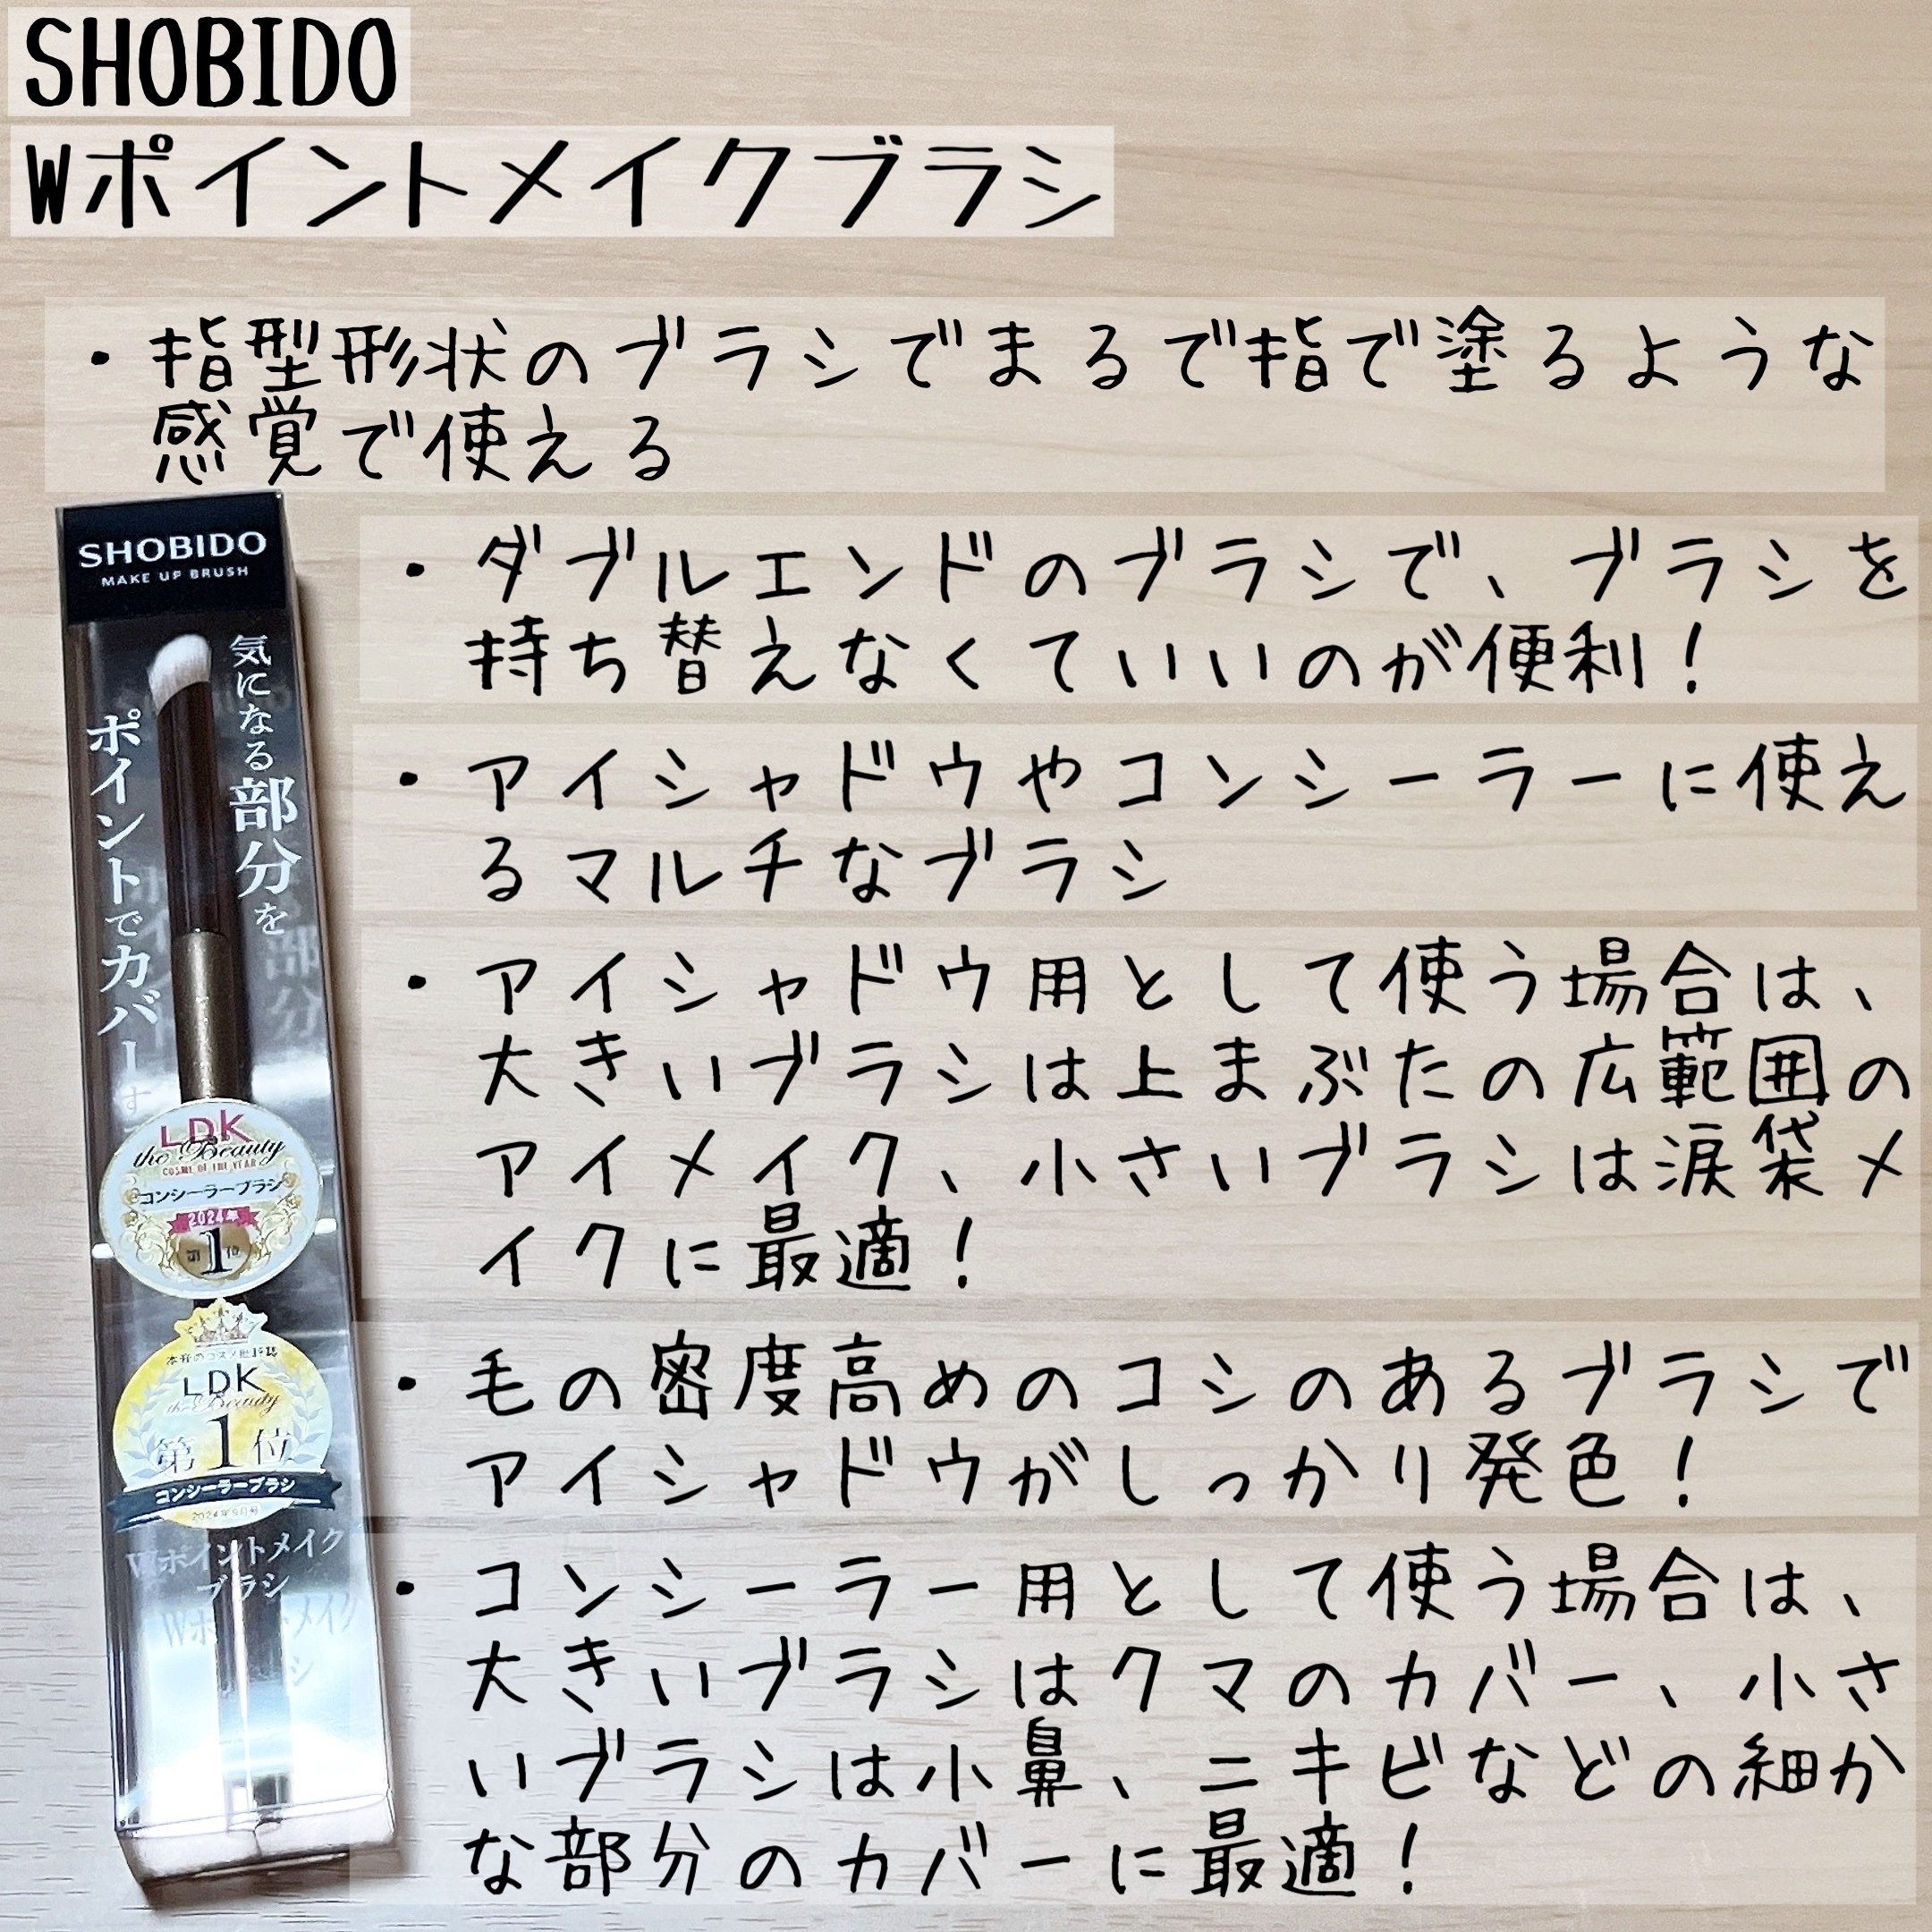 SHOBIDO
Wポイントメイクブラシ
・指型形状のブラシでまるで指で塗るような
感覚で使える
・ダブルエンドのブラシで、ブラシを
持ち替えなくていいのが便利！
・アイシャドウやコンシーラーに使え
るマルチなブラシ
・アイシャドウ用として使う場合は、
大きいブラシは上まぶたの広範囲の
アイメイク、小さいブラシは涙袋メ
イクに最適！
・毛の密度高めのコシのあるブラシで
アイシャドウがしっかり発色！
・コンシーラー用として使う場合は、
大きいブラシはクマのカバー、小さ
いブラシは小鼻、ニキビなどの細か
な部分のカバーに最適！
SHOBIDO
MAKE UP BRUSH
気になる部分を
ポイントでカバーす
LDK
the Beauty
COSME OF THE YEAR
コンシーラーブラシ
2024年
第1位
LDK
the Beauty
第1位
コンシーラーブラシ
2024年9月号
Wポイントメイク
ブラシ